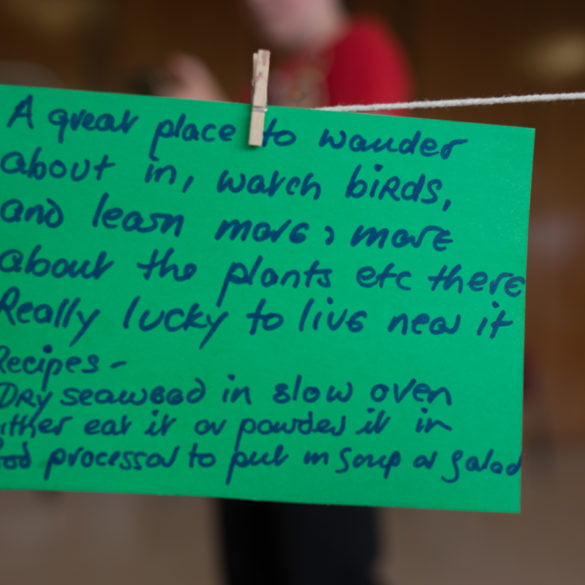 A great place to wander
about in, watch birds,
and learn more & more
about the plants etc there
Really lucky to live near it
Recipes -
Dry seaweed in slow oven
either eat it or powder it in
food processor to put in soup or salad